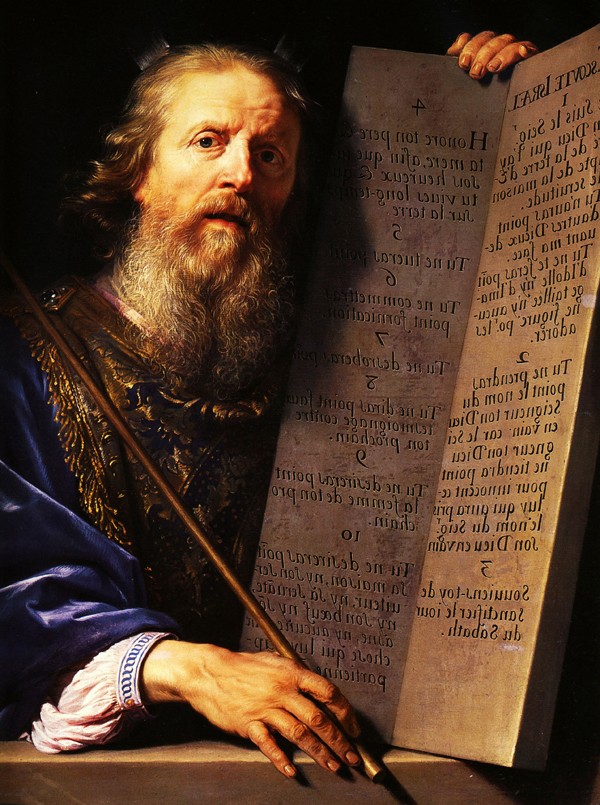 ESCOVTE ISRAEL
1
Suis le Seig.r
Dieu qui t'ay
de la terre d'E
pte de la maison
servitude.
Tu n'auras point
dautres Dieux de-
uant ma face.
Tu ne te feras poĩt
d'Idolle ny d'Ima-
ge taillée ny aucu-
ne figure po.r les
adorer.
2
Tu ne prendras
point le nom du
Seigneur ton Dieu
en vain: car le Sei
gneur ton Dieu
ne tiendra point
pour innocent ce
luy qui aura pris
le nom du Seig.r
son Dieu en vain
3
Souuiens-toy de
sanctifier le iour
du Sabath.
4
Honore ton pere &
ta mere, afin que tu
sois heureux & que
tu viues long-temps
sur la terre
5
Tu ne tueras point
6
Tu ne commettras
point fornication
7
Tu ne desroberas
8
Tu ne diras point faux
tesmoignage contre
ton prochain.
9
Tu ne desireras point
la femme de ton pro
chain.
10
Tu ne desireras poĩt
sa maison, ny son ser
uiteur, ny sa seruãte
ny son bœuf ny son
asne, ny aucune
chose qui luy ap-
partienne